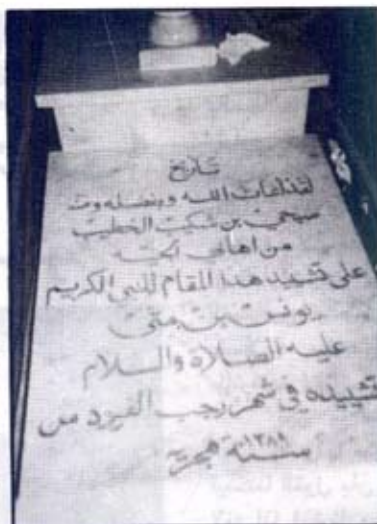 تاريخ
لقد أعان الله وبفضله
بن شكيب الخطيب
من اهالي
على تشييد هذا المقام للنبي الكريم
يونس بن متى
عليه الصلاة والسلام
تشييده في شهر رجب الفرد من
سنة ١٣٨٩ هجرية